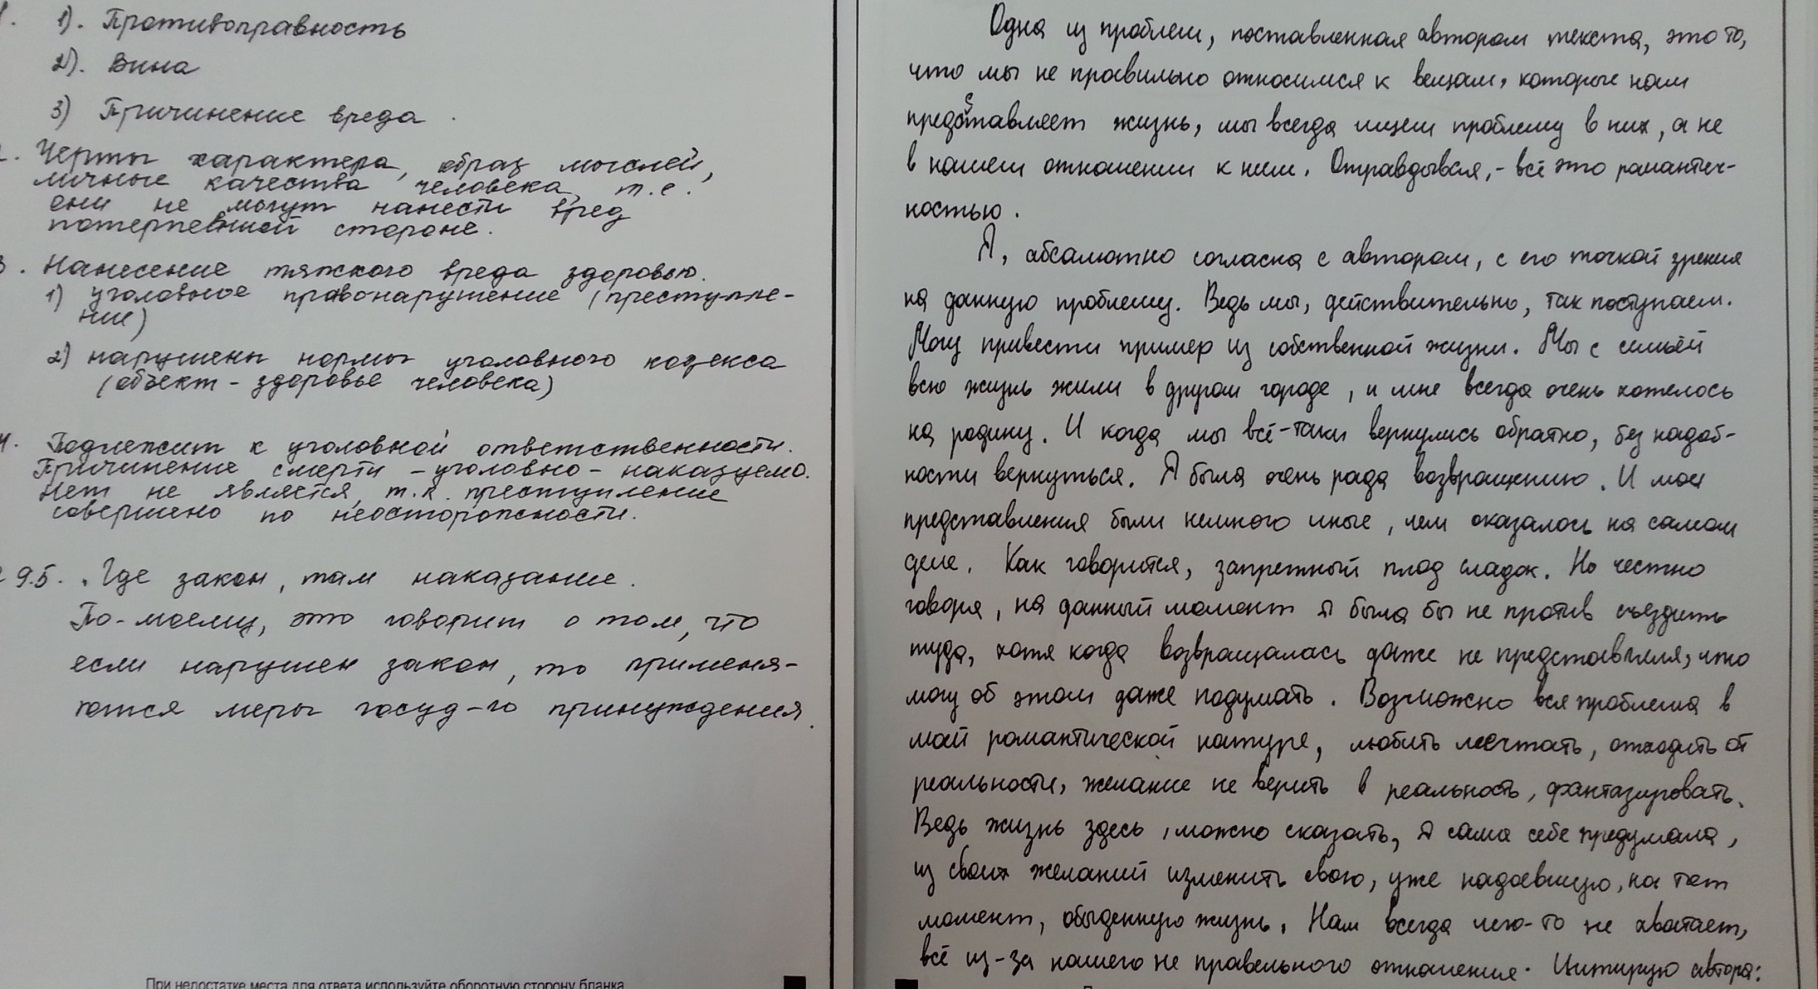 1). Противоправность
2). Вина
3) Причинение вреда.
Черты характера, образ мыслей,
личные качества человека, т.е.
они не могут нанести вред
потерпевшей стороне.
3. Нанесение тяжкого вреда здоровью.
1) уголовное правонарушение (преступле-
ние)
2) нарушены нормы уголовного кодекса
(объект - здоровье человека)
4. Подлежит к уголовной ответственности.
Причинение смерти - уголовно - наказуемо.
Нет не является, т.к. преступление
совершено по неосторожности.
9.5. Где закон, там наказание.
По-моему, это говорит о том, что
если нарушен закон, то применя-
ются меры госуд-го принуждения.
При недостатке места для ответа используйте оборотную сторону бланка
Одна из проблем, поставленная автором текста, это то,
что мы не правильно относимся к вещам, которые нам
предоставляет жизнь, мы всегда ищем проблему в них, а не
в нашем отношении к ним. Оправдывая, - всё это романтич-
ностью.
Я, абсалютно согласна с автором, с его точкой зрения
на данную проблему. Ведь мы, действительно, так поступаем.
Могу привести пример из собственной жизни. Мы с семьёй
всю жизнь жили в другом городе, и мне всегда очень хотелось
на родину. И когда мы всё-таки вернулись обратно, без надоб-
ности вернуться. Я была очень рада возвращению. И мои
представления были немного иные, чем оказалось на самом
деле. Как говорится, запретный плод сладок. Но честно
говоря, на данный момент я была бы не против съездить
туда, хотя когда возвращалась даже не представляла, что
могу об этом даже подумать. Возможно вся проблема в
моей романтической натуре, любить мечтать, отходить от
реальности, желание не верить в реальность, фантазировать.
Ведь жизнь здесь, можно сказать, я сама себе придумала,
из своих желаний изменить свою, уже надоевшую, на тот
момент, обыденную жизнь. Нам всегда чего-то не хватает,
всё из-за нашего не правельного отношения. Цитирую автора: